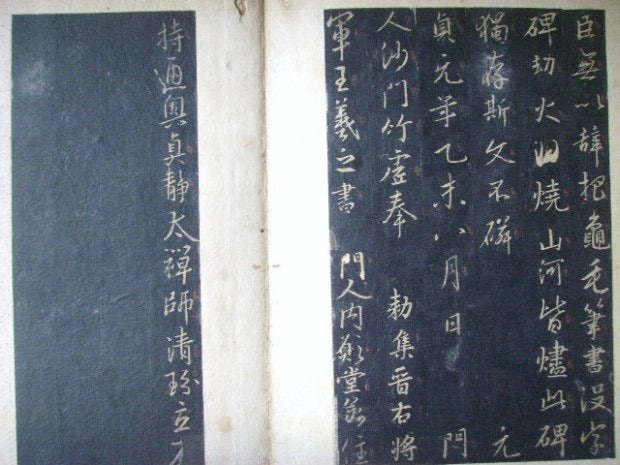 臣無以辞把龜毛筆書没字
碑劫火洞燒山河皆燼此碑
獨存斯文不磷 元
貞元年乙未八月日 門
人沙門竹虛奉 勅集晋右將
軍王羲之書 門人内願堂兼住
持通奥真静大禪師清玢立